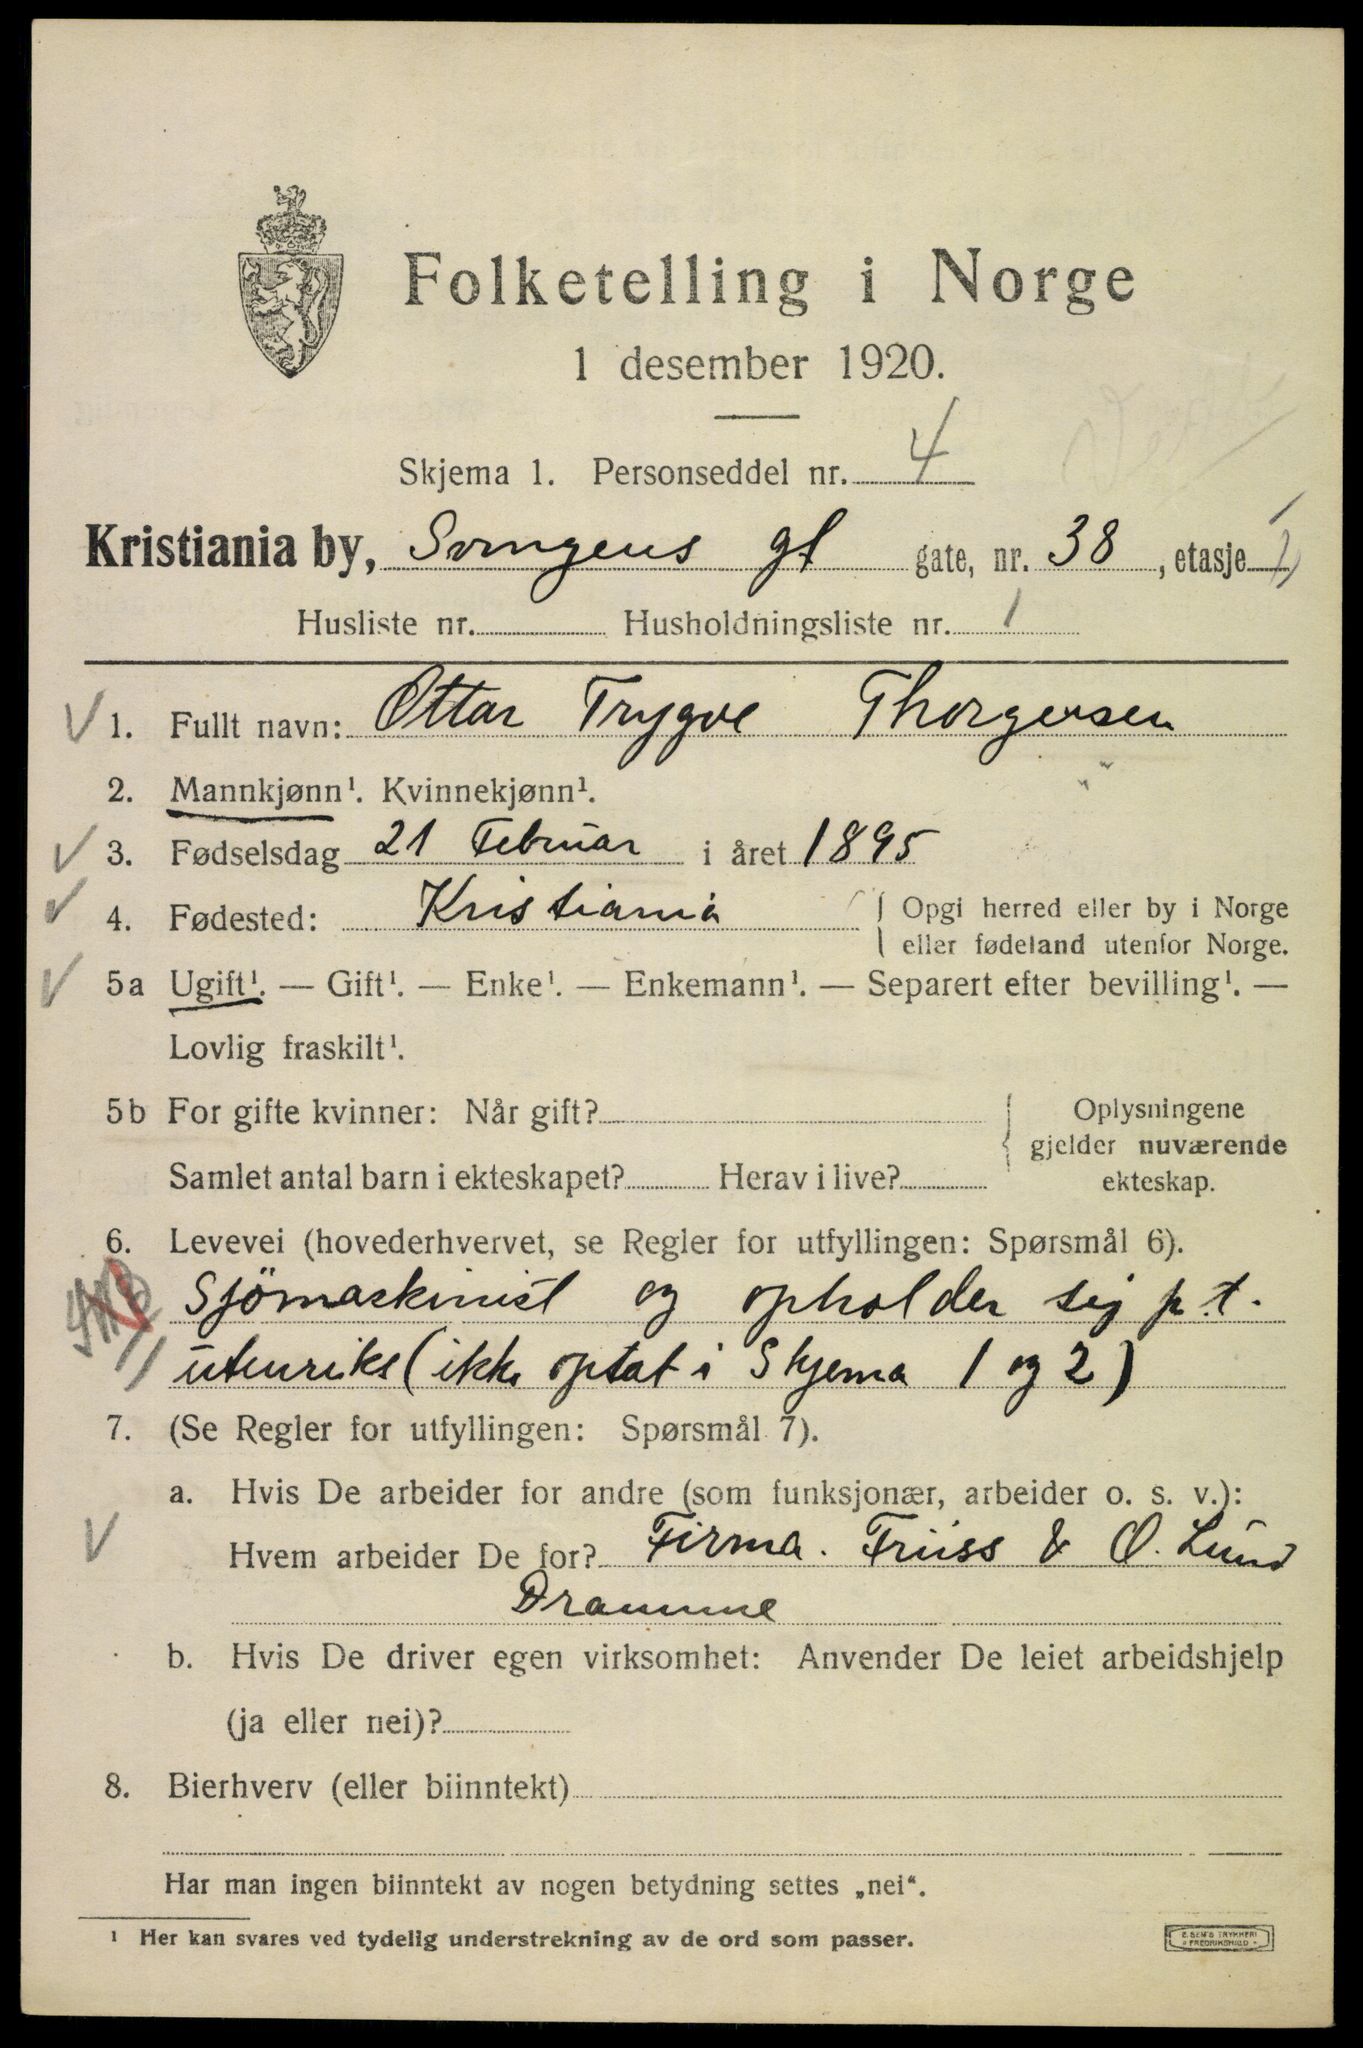 Folketelling i Norge
1 desember 1920.
Skjema 1. Personseddel nr. 4
Kristiania by, gt gate, nr. 38, etasje
Husliste nr. Husholdningsliste nr. 1
1. Fullt navn: Ottar Trygve Thorgersen
2. Mannkjønn¹. Kvinnekjønn¹.
3. Fødselsdag 21 Februar i året 1895
4. Fødested: Kristiania { Opgi herred eller by i Norge
eller fødeland utenfor Norge.
5a Ugift¹. — Gift¹. — Enke¹. — Enkemann¹. — Separert efter bevilling¹. —
Lovlig fraskilt¹.
5b For gifte kvinner: Når gift? { Oplysningene
gjelder nuværende
Samlet antal barn i ekteskapet? Herav i live? ekteskap.
6. Levevei (hovederhvervet, se Regler for utfyllingen: Spørsmål 6).
Sjömaskinist og opholder sig p.t.
utenriks (ikke optat i Skjema 1 og 2)
7. (Se Regler for utfyllingen: Spørsmål 7).
a. Hvis De arbeider for andre (som funksjonær, arbeider o. s. v.):
Hvem arbeider De for? Firma. Friiss & O. Lund
Dramme
b. Hvis De driver egen virksomhet: Anvender De leiet arbeidshjelp
(ja eller nei)?
8. Bierhverv (eller biinntekt)
Har man ingen biinntekt av nogen betydning settes „nei“.
¹ Her kan svares ved tydelig understrekning av de ord som passer.
E. SEM'S TRYKKERI
FREDRIKSHALD